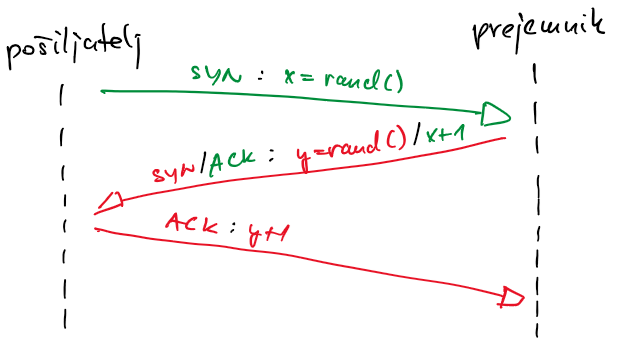 pošiljatelj
prejemnik
SYN : x = rand()
SYN/ACK : y=rand()/x+1
ACK : y+1